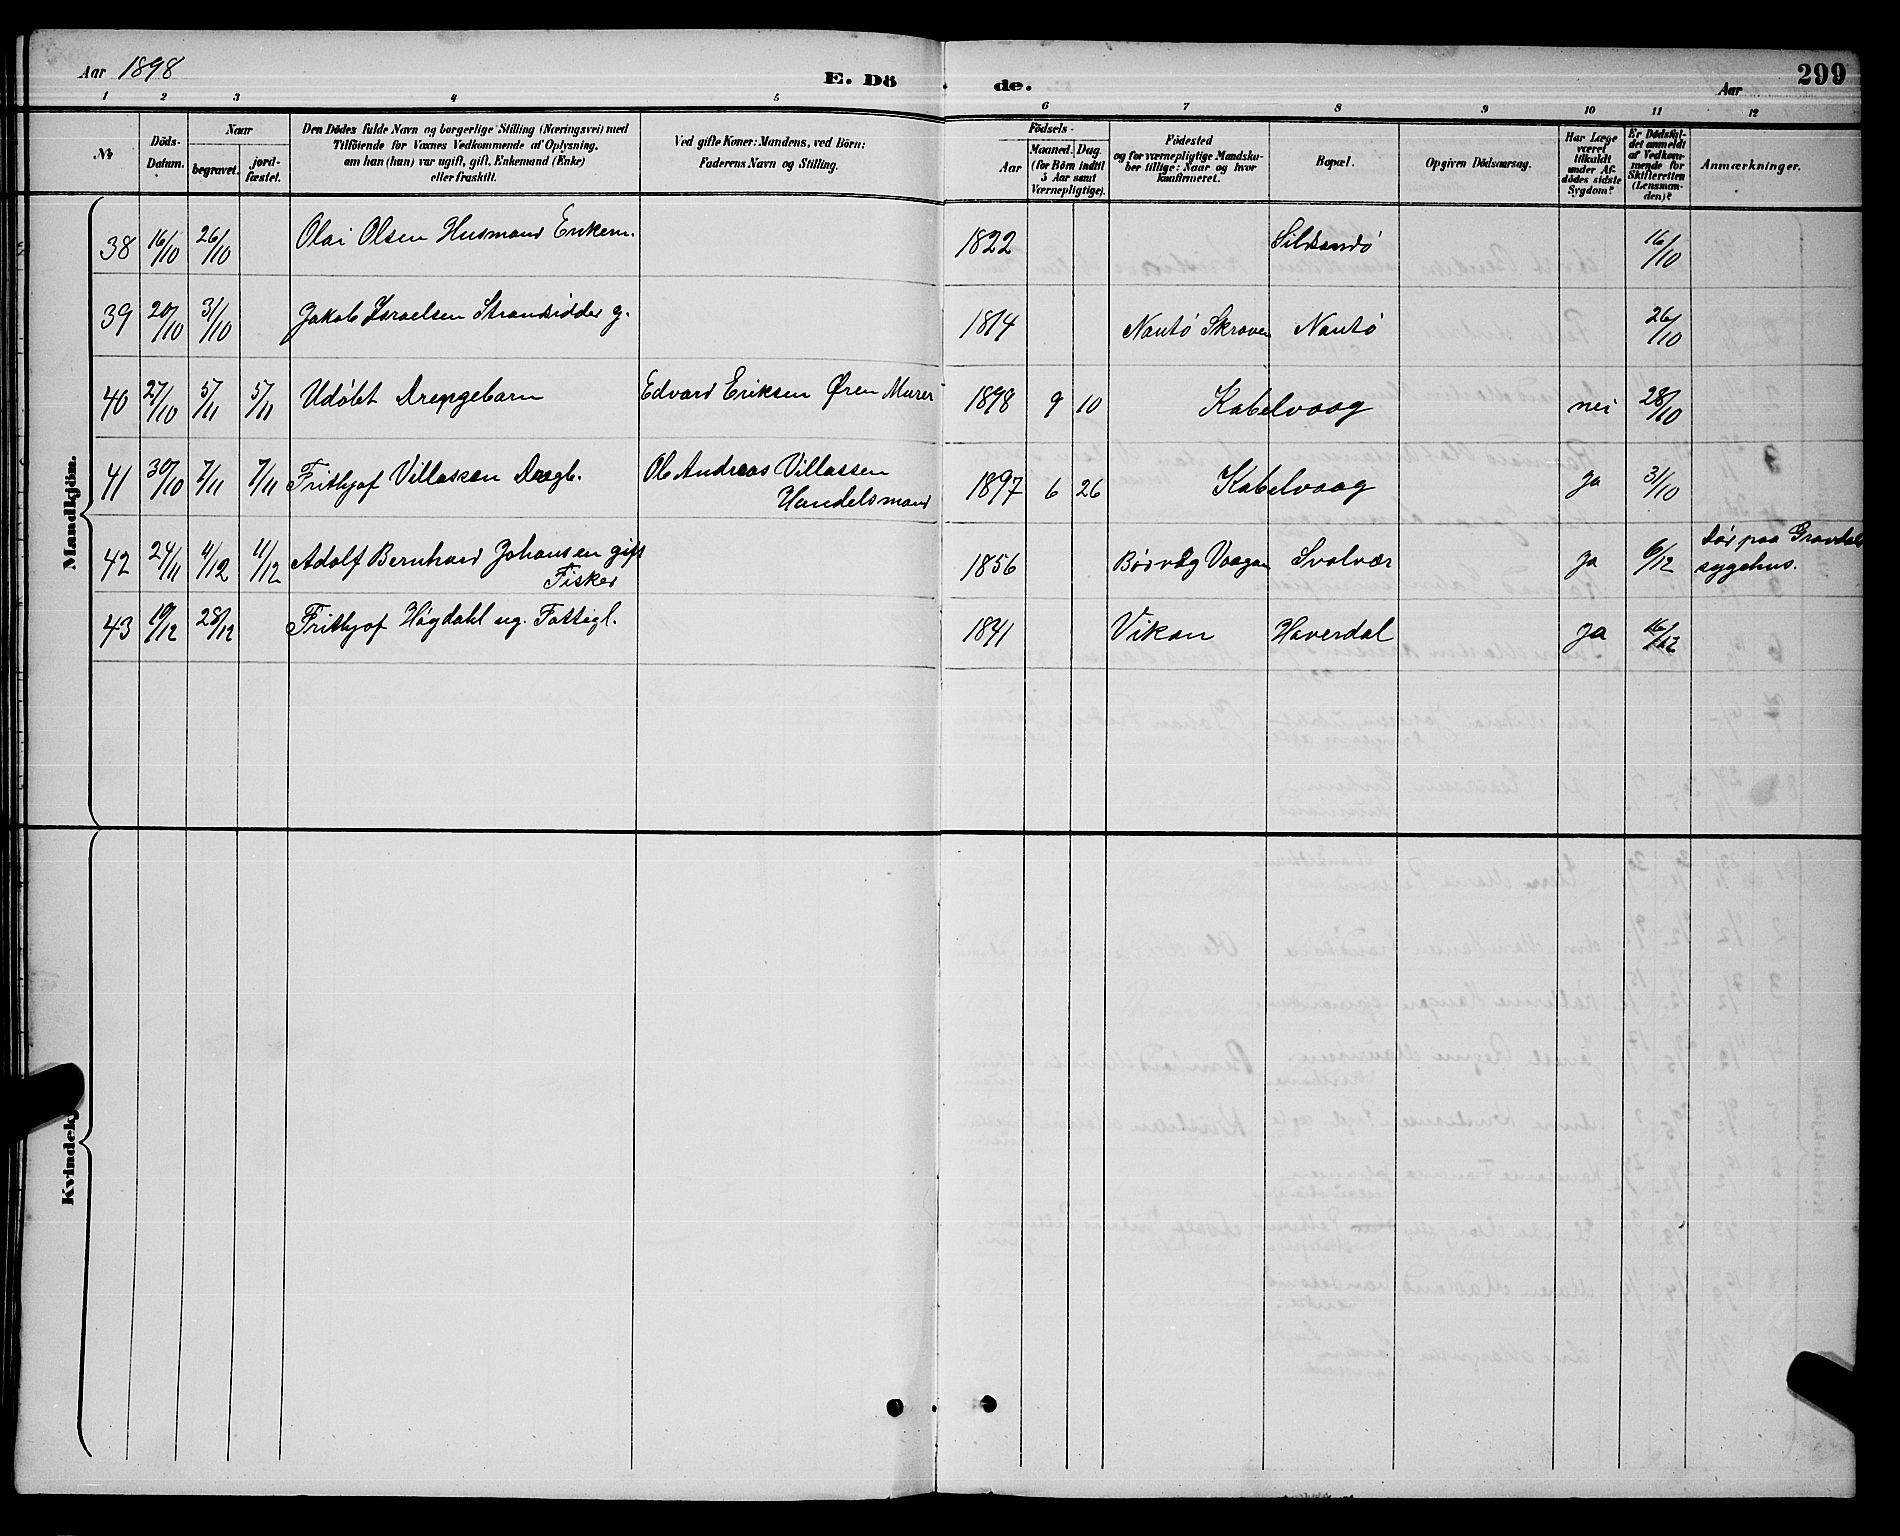 Aar 1898
E. Döde.
Aar
299
1 2 3 4 5 6 7 8 9 10 11 12
No
Döds-Datum.
Naar
begravet.
jord-fæstet.
Den Dödes fulde Navn og borgerlige Stilling (Næringsvei) med
Tilföiende for Voxnes Vedkommende af Oplysning,
om han (hun) var ugift, gift, Enkemand (Enke)
eller fraskilt.
Ved gifte Koner: Mandens, ved Börn:
Faderens Navn og Stilling.
Födsels-
Aar
Maaned. Dag.
(for Börn indtil
5 Aar samt
Værnepligtige).
Födested
og for værnepligtige Mandska-
ber tillige: Naar og hvor
konfirmeret.
Bopæl.
Opgiven Dödsaarsag.
Har Læge
været
tilkaldt
under Af-
dödes sidste
Sygdom?
Er Dödsfal-
det anmeldt
af Vedkom-
mende for
Skifteretten
(Lensman-
den)?
Anmærkninger.
Mandkjön.
38 16/10 26/10 Olai Olsen Husmand Enkem. 1822 Sildsandö 16/10
39 20/10 31/10 Jakob Israelsen Strandsidder g. 1814 Nautö Skroven Nautö 26/10
40 27/10 5/11 5/11 Udöbt Drengebarn Edvard Eriksen Øren Murer 1898 9 10 Kabelvaag nei 28/10
41 30/10 7/11 7/11 Frithjof Villassen Drgb. Ole Andreas Villassen
Handelsmand 1897 6 26 Kabelvaag ja 31/10
42 24/11 4/12 11/12 Adolf Bernhard Johansen gift
Fisker 1856 Börvåg Vaagan Svolvær ja 6/12 död paa Gravdal
sygehus.
43 19/12 28/12 Frithjof Högdahl ug. Fattigl. 1841 Vikan Haverdal ja
Kvindekj